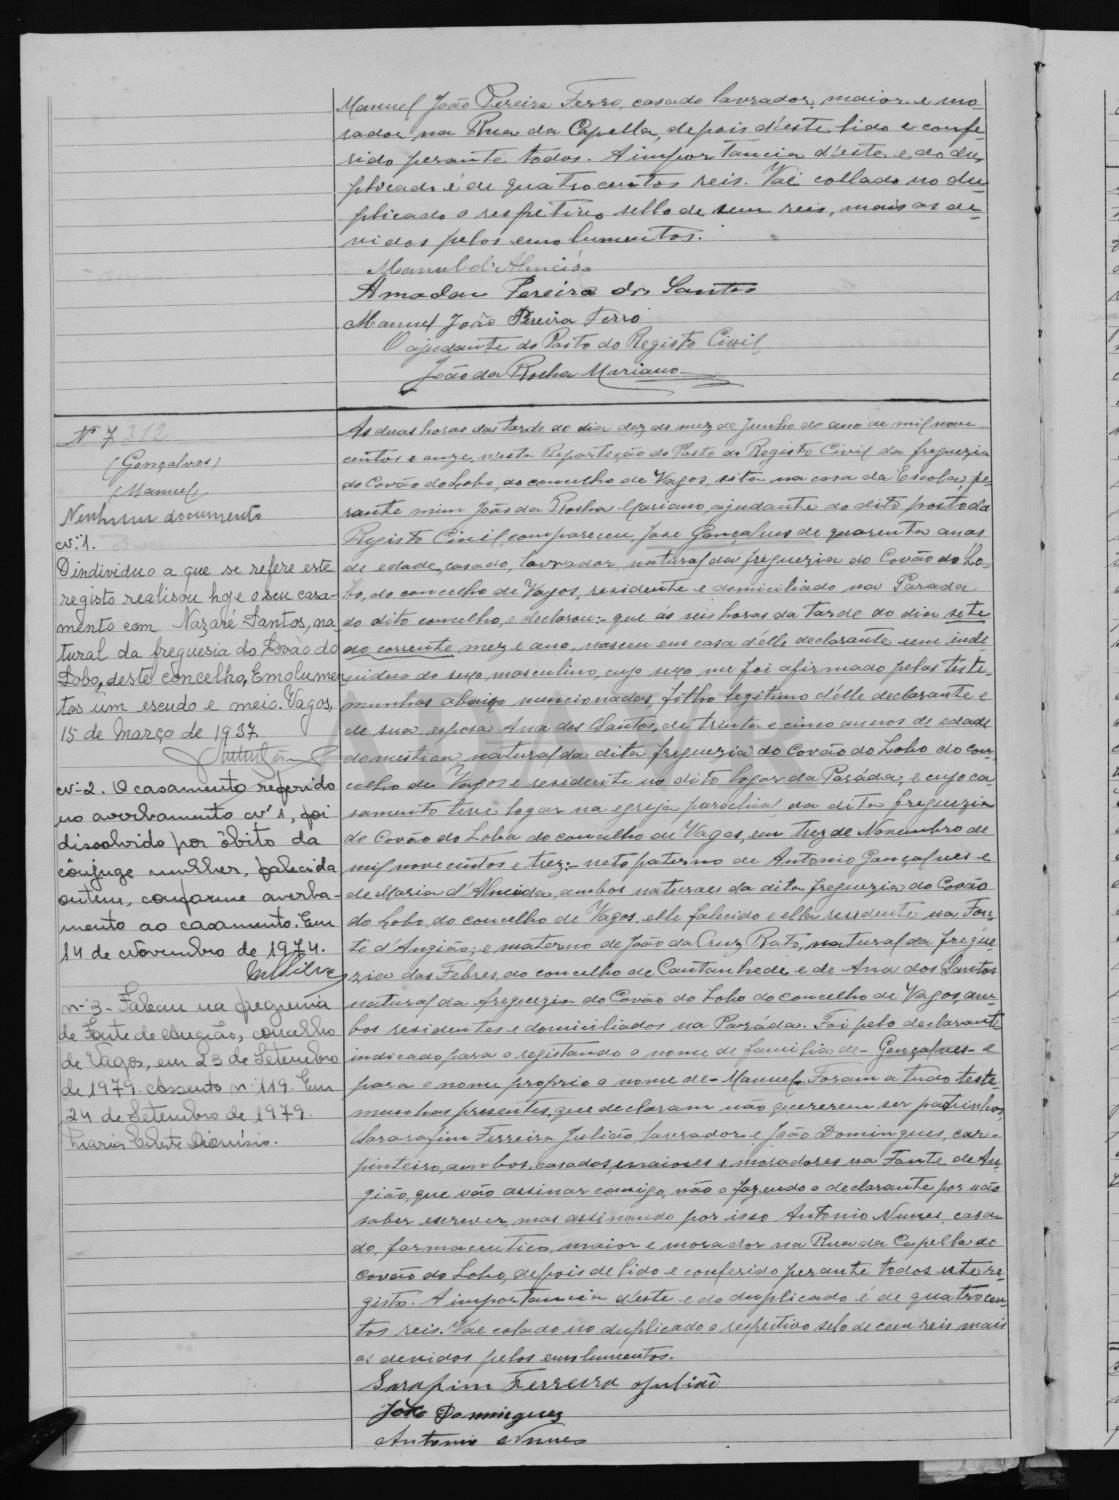 Manuel João Pereira Ferro, casado lavrador, maior e mo-
rador na Rua da Capella, depois d'este lido e confe-
rido perante todos. A importancia d'este e do du-
plicado é de quatrocentos reis. Vai collado no du-
plicado o respetivo sello de cem reis, mais os de-
vidos pelos emolumentos.
Manuel d'Almeida
Amadeu Pereira dos Santos
Manuel João Pereira Ferro
O ajudante do Posto do Registo Civil
João da Rocha Mariano
Nº 7 312
(Gonçalves)
(Manuel)
Nenhum documento
nº 1.
O individuo a que se refere este
registo realisou hoje o seu casa-
mento com Nazaré Santos, na-
tural da freguesia do Covão do
Lobo, deste concelho, Emolumen-
tos um escudo e meio. Vagos,
15 de Março de 1937.
nº 2. O casamento referido
no averbamento nº 1, foi
dissolvido por óbito da
cônjuge mulher, falecida
ontem, conforme averba-
mento ao casamento. Em
14 de Novembro de 1974.
nº 3 - Faleceu na freguesia
de Fonte de Angião, concelho
de Vagos, em 23 de Setembro
de 1979. Assento nº 119. Em
24 de Setembro de 1979.
Maria Celeste Dionísio.
As duas horas da tarde do dia dez do mez de Junho do ano de mil nove
centos e onze, n'esta Repartição do Posto do Registo Civil da freguezia
do Covão do Lobo, do concelho de Vagos, sito na casa da Escola, pe-
rante mim João da Rocha Mariano, ajudante do dito posto do
Registo Civil, compareceu, José Gonçalves de quarenta anos
de edade, casado, lavrador, natural da freguezia do Covão do Lo-
bo, do concelho de Vagos, residente e domiciliado na Parada
do dito concelho, e declarou:- que ás seis horas da tarde do dia sete
do corrente mez e ano, nasceu em casa d'elle declarante um indi-
viduo do sexo masculino, cujo sexo me foi afirmado pelas teste-
munhas abaixo mencionadas, filho legitimo d'elle declarante e
de sua esposa Ana dos Santos, de trinta e cinco annos de edade
domestica, natural da dita freguezia do Covão do Lobo do con-
celho de Vagos e residente no dito logar da Paráda, e cujo ca-
samento teve logar na egreja parochial da dita freguezia
do Covão do Lobo do concelho de Vagos, em trez de Novembro de
mil nove centos e trez:- neto paterno de Antonio Gonçalves e
de Maria d'Almeida, ambos naturaes da dita freguezia do Covão
do Lobo, do concelho de Vagos, elle falecido e ella residente na Fon-
te d'Angião; e materno de João da Cruz Rato, natural da fregue-
zia das Febres, do concelho de Cantanhede e de Ana dos Santos
natural da freguezia do Covão do Lobo do concelho de Vagos, am-
bos residentes e domiciliados na Paráda. Foi pelo declarante
indicado para o registando o nome de familia de - Gonçalves - e
para o nome proprio o nome de - Manuel. Foram a tudo teste-
munhas presentes, que declaram não quererem ser padrinhos,
Sarafim Ferreira Julião, lavrador e João Domingues, car-
pinteiro, ambos casados, maiores e moradores na Fonte de An-
gião, que vão assinar comigo, não o fazendo o declarante por não
saber escrever, mas assinando por isso Antonio Nunes, casa-
do, farmaceutico, maior e morador na Rua da Capella do
Covão do Lobo, depois de lido e conferido perante todos este re-
gisto. A importancia d'este e do duplicado é de quatrocen-
tos reis. Vae colado no duplicado o respectivo selo de cem reis mais
os devidos pelos emolumentos.
Sarafim Ferreira Julião
João Domingues
Antonio Nunes